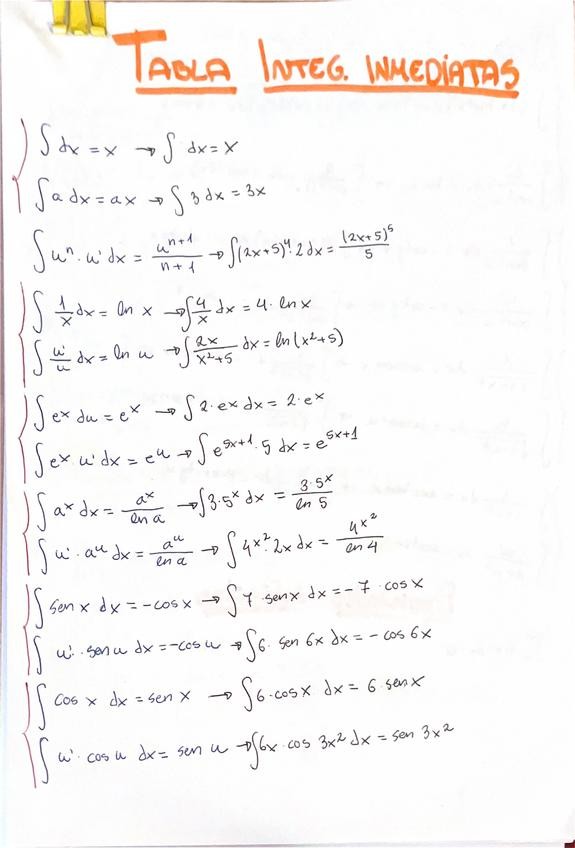 TABLA INTEG. INMEDIATAS
∫ dx = x → ∫ dx = x
∫ a dx = ax → ∫ 3 dx = 3x
∫ uⁿ · u' dx = uⁿ⁺¹/(n+1) → ∫ (2x+5)⁴ · 2 dx = (2x+5)⁵/5
∫ 1/x dx = ln x → ∫ 4/x dx = 4 · ln x
∫ u'/u dx = ln u → ∫ 2x/(x²+5) dx = ln(x²+5)
∫ eˣ du = eˣ → ∫ 2 · eˣ dx = 2 · eˣ
∫ eˣ · u' dx = eᵘ → ∫ e⁵ˣ⁺¹ · 5 dx = e⁵ˣ⁺¹
∫ aˣ dx = aˣ/ln a → ∫ 3 · 5ˣ dx = 3 · 5ˣ/ln 5
∫ u' · aᵘ dx = aᵘ/ln a → ∫ 4^x² · 2x dx = 4^x²/ln 4
∫ sen x dx = -cos x → ∫ 7 · sen x dx = -7 · cos x
∫ u' · sen u dx = -cos u → ∫ 6 · sen 6x dx = -cos 6x
∫ cos x dx = sen x → ∫ 6 · cos x dx = 6 · sen x
∫ u' · cos u dx = sen u → ∫ 6x · cos 3x² dx = sen 3x²